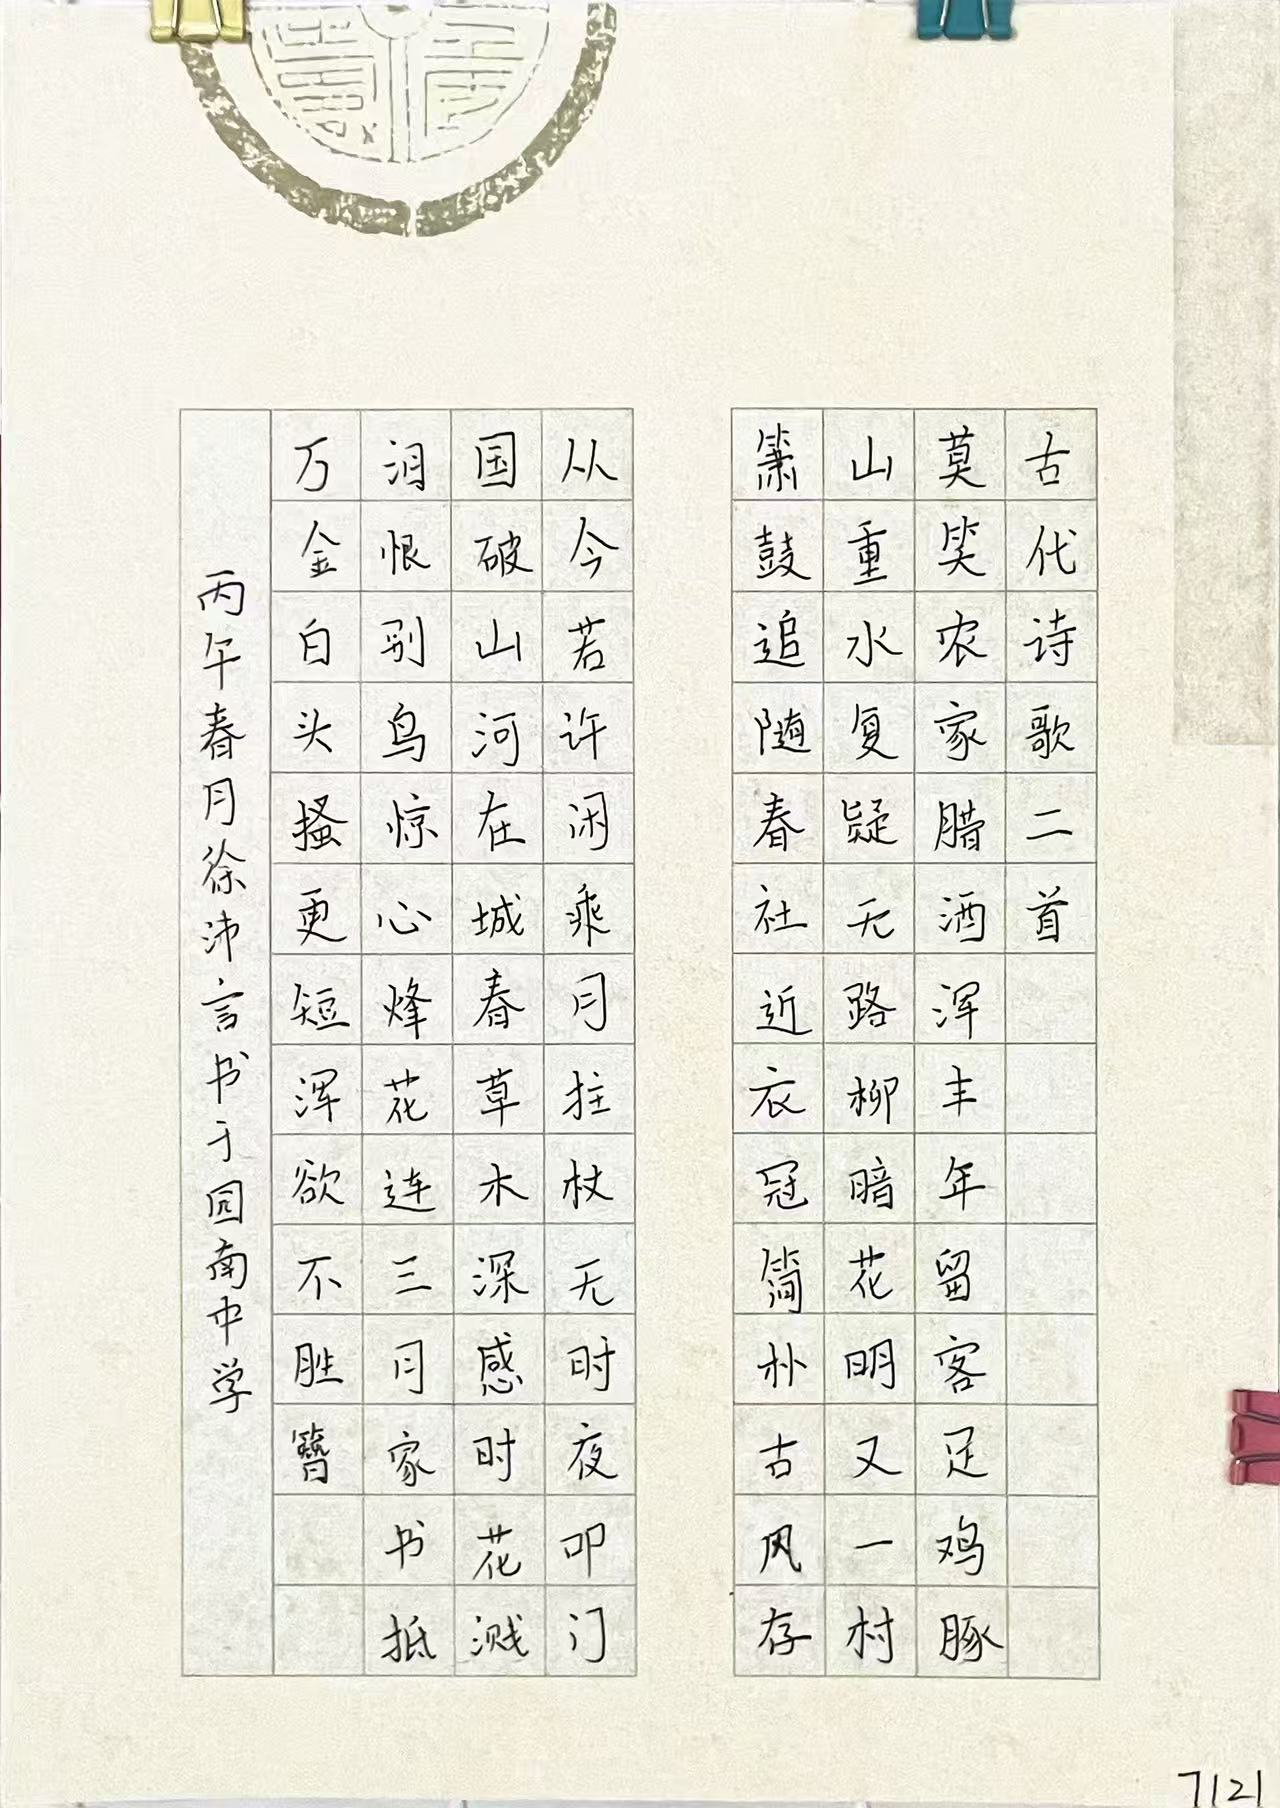 古代诗歌二首
莫笑农家腊酒浑丰年留客足鸡豚
山重水复疑无路柳暗花明又一村
箫鼓追随春社近衣冠简朴古风存
从今若许闲乘月拄杖无时夜叩门
国破山河在城春草木深感时花溅
泪恨别鸟惊心烽花连三月家书抵
万金白头搔更短浑欲不胜簪
丙午春月徐沛言书于园南中学
7121